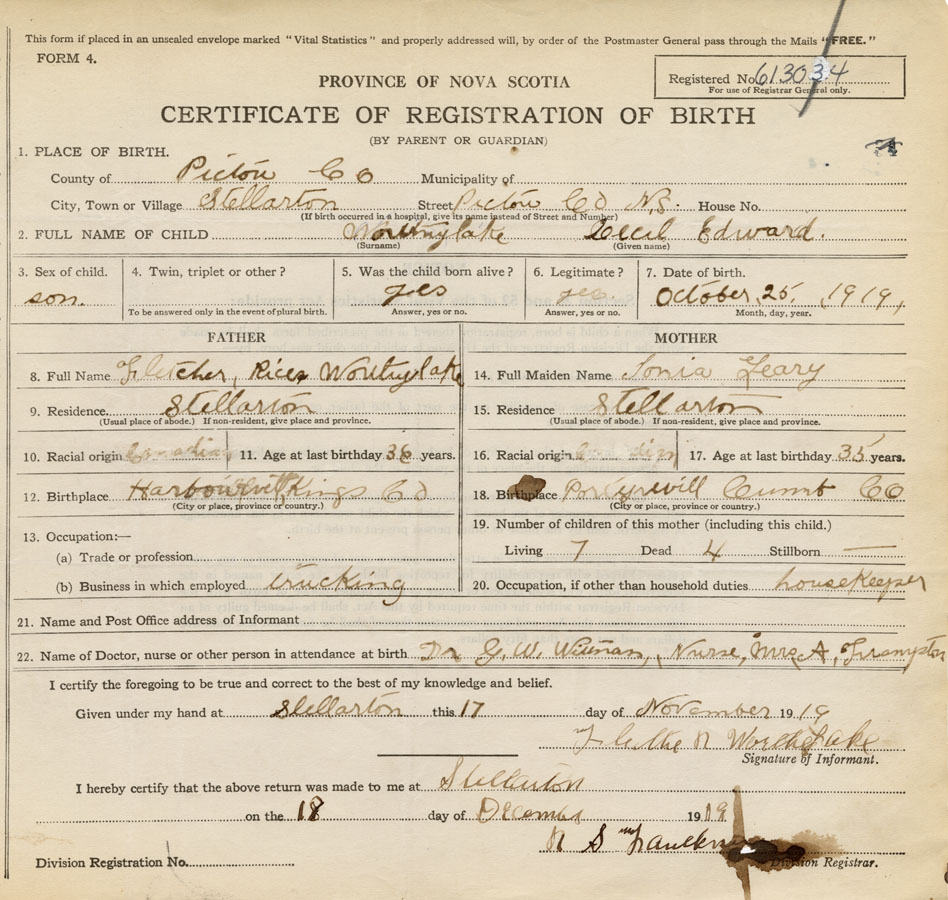 This form if placed in an unsealed envelope marked "Vital Statistics" and properly addressed will, by order of the Postmaster General pass through the Mails "FREE."
FORM 4.
PROVINCE OF NOVA SCOTIA
Registered No. 613034
For use of Registrar General only.
CERTIFICATE OF REGISTRATION OF BIRTH
(BY PARENT OR GUARDIAN)
1. PLACE OF BIRTH.
County of Pictou Co Municipality of
City, Town or Village Stellarton Street Pictou Co N.S. House No.
(If birth occurred in a hospital, give its name instead of Street and Number)
2. FULL NAME OF CHILD Worthylake Cecil Edward.
(Surname) (Given name)
3. Sex of child. 4. Twin, triplet or other? 5. Was the child born alive? 6. Legitimate? 7. Date of birth.
son. yes yes October, 25, 1919,
To be answered only in the event of plural birth. Answer, yes or no. Answer, yes or no. Month, day, year.
FATHER MOTHER
8. Full Name Fletcher, Rice Worthylake 14. Full Maiden Name Sonia Leary
9. Residence Stellarton 15. Residence Stellarton
(Usual place of abode.) If non-resident, give place and province. (Usual place of abode.) If non-resident, give place and province.
10. Racial origin Canadian 11. Age at last birthday 36 years. 16. Racial origin Canadian 17. Age at last birthday 35 years.
12. Birthplace Kings Co 18. Birthplace Cumb Co
(City or place, province or country.) (City or place, province or country.)
19. Number of children of this mother (including this child.)
13. Occupation:—
(a) Trade or profession Living 7 Dead 4 Stillborn —
(b) Business in which employed trucking 20. Occupation, if other than household duties housekeeper
21. Name and Post Office address of Informant
22. Name of Doctor, nurse or other person in attendance at birth Dr G. W. Nurse, Mrs A,
I certify the foregoing to be true and correct to the best of my knowledge and belief.
Given under my hand at Stellarton this 17 day of November 1919
R Worthylake
Signature of Informant.
I hereby certify that the above return was made to me at Stellarton
on the 18 day of December 1919
R S Faulkner
Division Registration No. Division Registrar.